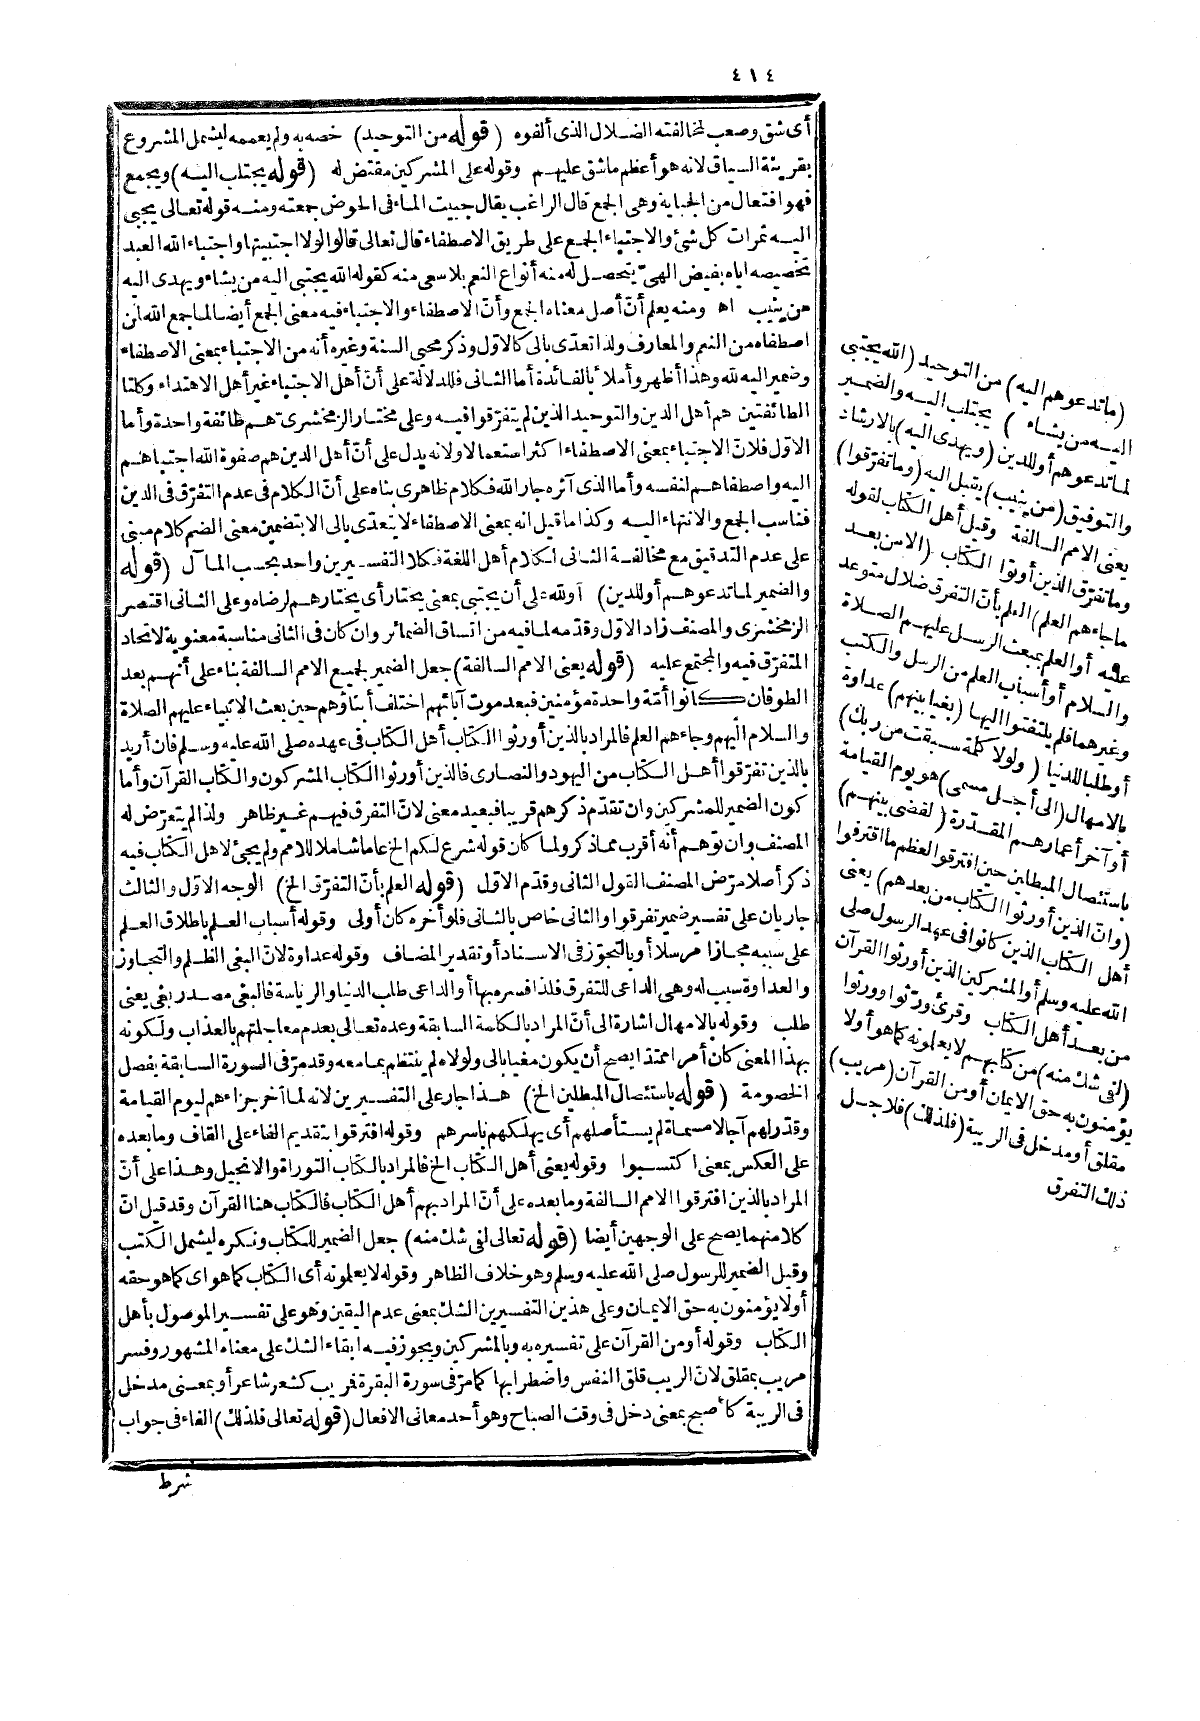 ٤١٤
أى شق وصعب لمخالفته الضلال الذى ألفوه (قوله من التوحيد) خصه به ولم يعممه ليشمل المشروع
بقرينة السياق لانه هو أعظم ماشق عليهم وقوله على المشركين مقتض له (قوله يجتلب اليه) ويجمع
فهو افتعال من الجباية وهى الجمع قال الراغب يقال جبيت الماء فى الحوض جمعته ومنه قوله تعالى يجبى
اليه ثمرات كل شئ والاجتباء الجمع على طريق الاصطفاء قال تعالى قالوا لولا اجتبيتها واجتباء الله العبد
تخصيصه اياه بفيض الهىّ يتحصل له منه أنواع النعم بلا سعى منه كقوله الله يجتبى اليه من يشاء ويهدى اليه
من ينيب اه ومنه يعلم أنّ أصل معناه الجمع وأنّ الاصطفاء والاجتباء فيه معنى الجمع أيضا لما جمع الله لمن
اصطفاه من النعم والمعارف ولذا تعدّى بالى كالاوّل وذكر محيى السنة وغيره أنه من الاجتباء بمعنى الاصطفاء
وضمير اليه لله وهذا أظهر وأملأ بالفائدة أما الثانى فللدلالة على أنّ أهل الاجتباء غير أهل الاهتداء وكلتا
الطائفتين هم أهل الدين والتوحيد الذين لم يتفرّقوا فيه وعلى مختار الزمخشرى هم طائفة واحدة وأما
الاوّل فلانّ الاجتباء بمعنى الاصطفاء اكثر استعمالا ولانه يدل على أنّ أهل الدين هم صفوة الله اجتباهم
اليه واصطفاهم لنفسه وأما الذى آثره جار الله فكلام ظاهرى بناه على أنّ الكلام فى عدم التفرّق فى الدين
فناسب الجمع والانتهاء اليه وكذا ما قيل انه بمعنى الاصطفاء لا يتعدّى بالى الا بتضمين معنى الضم كلام مبنى
على عدم التدقيق مع مخالفة الثانى لكلام أهل اللغة فكلا التفسيرين واحد بحسب المآل (قوله
والضمير لما تدعوهم أو للدين) أو لله على أن يجتبى بمعنى يختار أى يختارهم لرضاه وعلى الثانى اقتصر
الزمخشرى والمصنف زاد الاوّل وقدّمه لما فيه من اتساق الضمائر وان كان فى الثانى مناسبة معنوية لاتحاد
المتفرّق فيه والمجتمع عليه (قوله يعنى الامم السالفة) جعل الضمير لجميع الامم السالفة بناء على أنهم بعد
الطوفان كانوا أمّة واحدة مؤمنين فبعد موت آبائهم اختلف أبناؤهم حين بعث الانبياء عليهم الصلاة
والسلام اليهم وجاءهم العلم فالمراد بالذين أورثوا الكتاب أهل الكتاب فى عهده صلى الله عليه وسلم فان أريد
بالذين تفرّقوا أهل الكتاب من اليهود والنصارى فالذين أورثوا الكتاب المشركون والكتاب القرآن وأما
كون الضمير للمشركين وان تقدّم ذكرهم قريبا فبعيد معنى لانّ التفرق فيهم غير ظاهر ولذا لم يتعرّض له
المصنف وان توهم أنه أقرب مما ذكر ولما كان قوله شرع لكم الخ عاما شاملا للامم ولم يجئ لاهل الكتاب فيه
ذكر أصلا مرّض المصنف القول الثانى وقدّم الاوّل (قوله العلم بأنّ التفرّق الخ) الوجه الاوّل والثالث
جاريان على تفسير ضمير تفرقوا والثانى خاص بالثانى فلو أخره كان أولى وقوله أسباب العلم باطلاق العلم
على سببه مجازا مرسلا أو بالتجوّز فى الاسناد أو تقدير المضاف وقوله عداوة لانّ البغى الظلم والتجاوز
والعداوة سبب له وهى الداعى للتفرق فلذا فسره بها أو الداعى طلب الدنيا والرياسة فالبغى مصدر بغى يعنى
طلب وقوله بالامهال اشارة الى أنّ المراد بالكلمة السابقة وعده تعالى بعدم معاجلتهم بالعذاب ولكونه
بهذا المعنى كان أمرا ممتدّا يصح أن يكون مغيا بالى ولولاه لم ينتظم بما معه وقد مرّ فى السورة السابقة بفصل
الخصومة (قوله باستئصال المبطلين الخ) هذا جار على التفسيرين لانه لما أخر جزاءهم ليوم القيامة
وقدّر لهم آجالا مسماة لم يستأصلهم أى يهلكهم بأسرهم وقوله افترقوا بتقديم الفاء على القاف وما بعده
على العكس بمعنى اكتسبوا وقوله يعنى أهل الكتاب الخ فالمراد بالكتاب التوراة والانجيل وهذا على أنّ
المراد بالذين افترقوا الامم السالفة وما بعده على أنّ المراد بهم أهل الكتاب فالكتاب هنا القرآن وقد قيل انّ
كلا منهما يصح على الوجهين أيضا (قوله تعالى لفى شك منه) جعل الضمير للكتاب ونكره ليشمل الكتب
وقيل الضمير للرسول صلى الله عليه وسلم وهو خلاف الظاهر وقوله لا يعلمونه أى الكتاب كما هو اى كما هو حقه
أو لا يؤمنون به حق الايمان وعلى هذين التفسيرين الشك بمعنى عدم اليقين وهو على تفسير الموصول بأهل
الكتاب وقوله أو من القرآن على تفسيره به وبالمشركين ويجوز فيه ابقاء الشك على معناه المشهور وفسر
مريب بمقلق لانّ الريب قلق النفس واضطرابها كما مرّ فى سورة البقرة فريب كشعر شاعر أو بمعنى مدخل
فى الريبة كأصبح بمعنى دخل فى وقت الصباح وهو أحد معانى الافعال (قوله تعالى فلذلك) الفاء فى جواب
شرط
(ما تدعوهم اليه) من التوحيد (الله يجتبى
اليه من يشاء) يجتلب اليه والضمير
لما تدعوهم أو للدين (ويهدى اليه) بالارشاد
والتوفيق (من ينيب) يقبل اليه (وما تفرّقوا)
يعنى الامم السالفة وقيل أهل الكتاب لقوله
وما تفرّق الذين أوتوا الكتاب (الا من بعد
ما جاءهم العلم) العلم بأنّ التفرق ضلال متوعد
عليه أو العلم بمبعث الرسل عليهم الصلاة
والسلام أو أسباب العلم من الرسل والكتب
وغيرهما فلم يلتفتوا اليها (بغيا بينهم) عداوة
أو طلبا للدنيا (ولولا كلمة سبقت من ربك)
بالامهال (الى أجل مسمى) هو يوم القيامة
أو آخر أعمارهم المقدّرة (لقضى بينهم)
باستئصال المبطلين حين افترقوا لعظم ما اقترفوا
(وانّ الذين أورثوا الكتاب من بعدهم) يعنى
أهل الكتاب الذين كانوا فى عهد الرسول صلى
الله عليه وسلم أو المشركين الذين أورثوا القرآن
من بعد أهل الكتاب وقرئ ورّثوا وورثوا
(لفى شك منه) من كتابهم لا يعلمونه كما هو أو لا
يؤمنون به حق الايمان أو من القرآن (مريب)
مقلق أو مدخل فى الريبة (فلذلك) فلاجل
ذلك التفرق